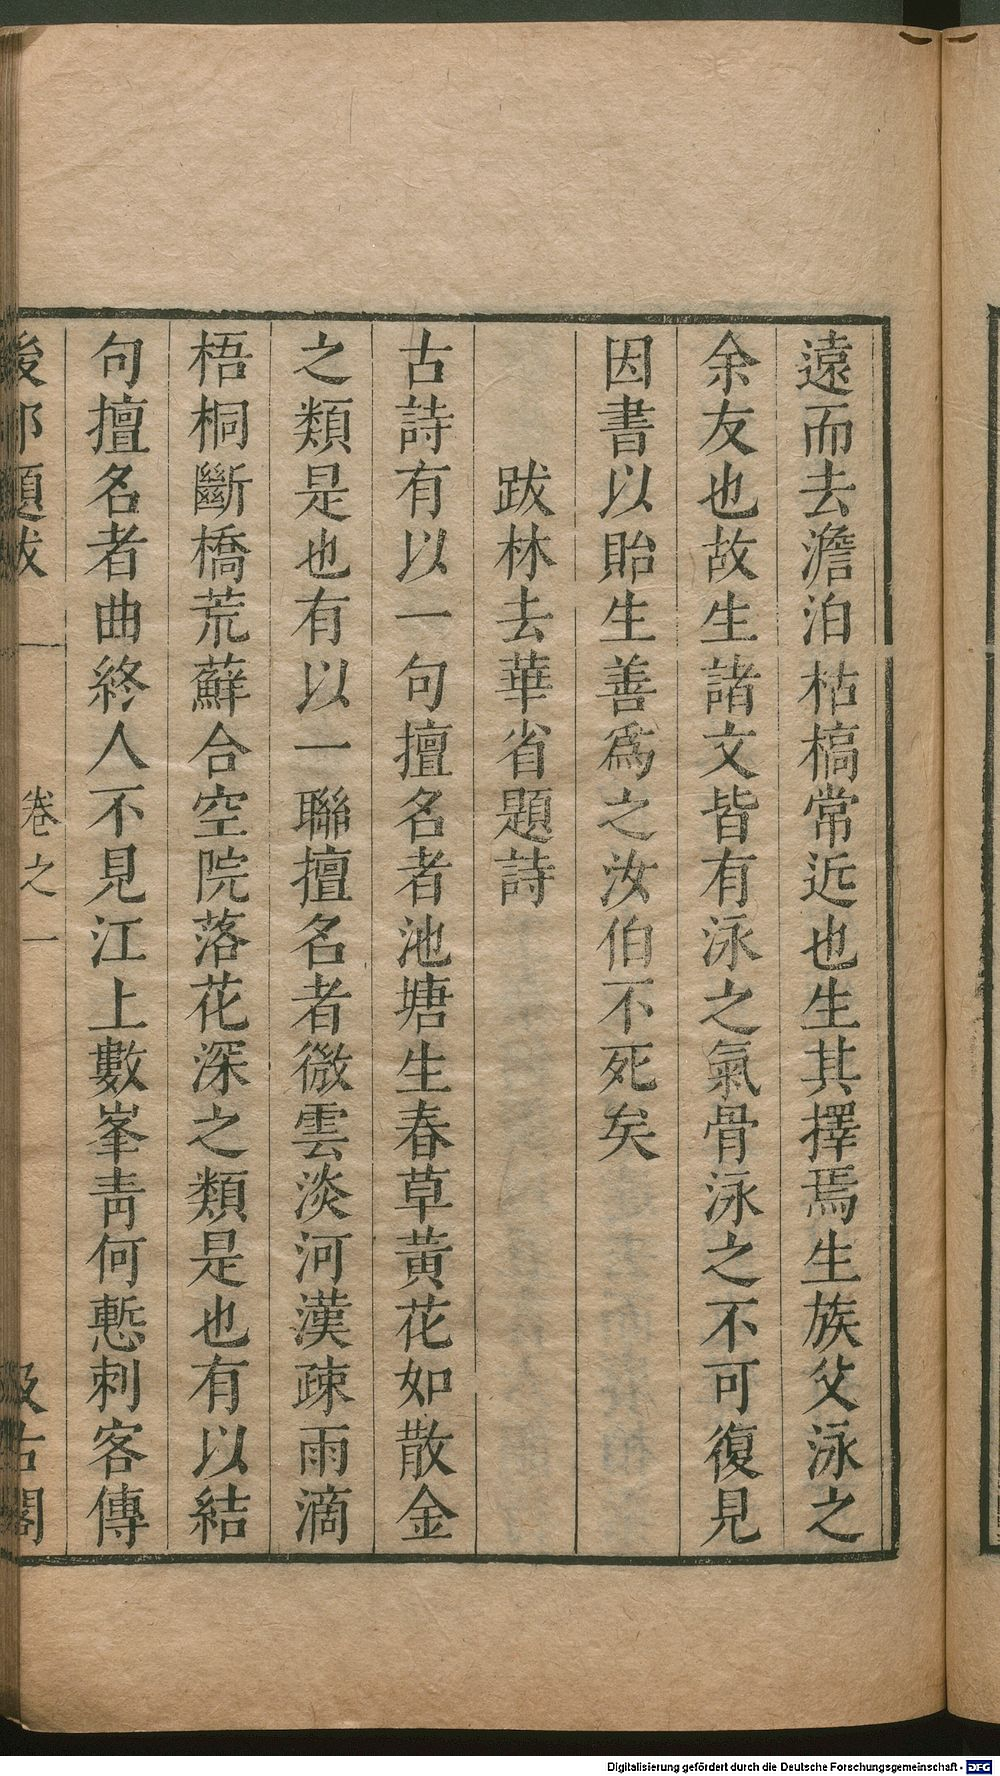 遠而去澹泊枯槁常近也生其擇焉生族父泳之
余友也故生諸文皆有泳之氣骨泳之不可復見
因書以貽生善爲之汝伯不死矣
跋林去華省題詩
古詩有以一句擅名者池塘生春草黃花如散金
之類是也有以一聯擅名者微雲淡河漢疎雨滴
梧桐斷橋荒蘚合空院落花深之類是也有以結
句擅名者曲終人不見江上數峯靑何慙刺客傳
後邨題跋
卷之一
汲古閣
Digitalisierung gefördert durch die Deutsche Forschungsgemeinschaft - DFG